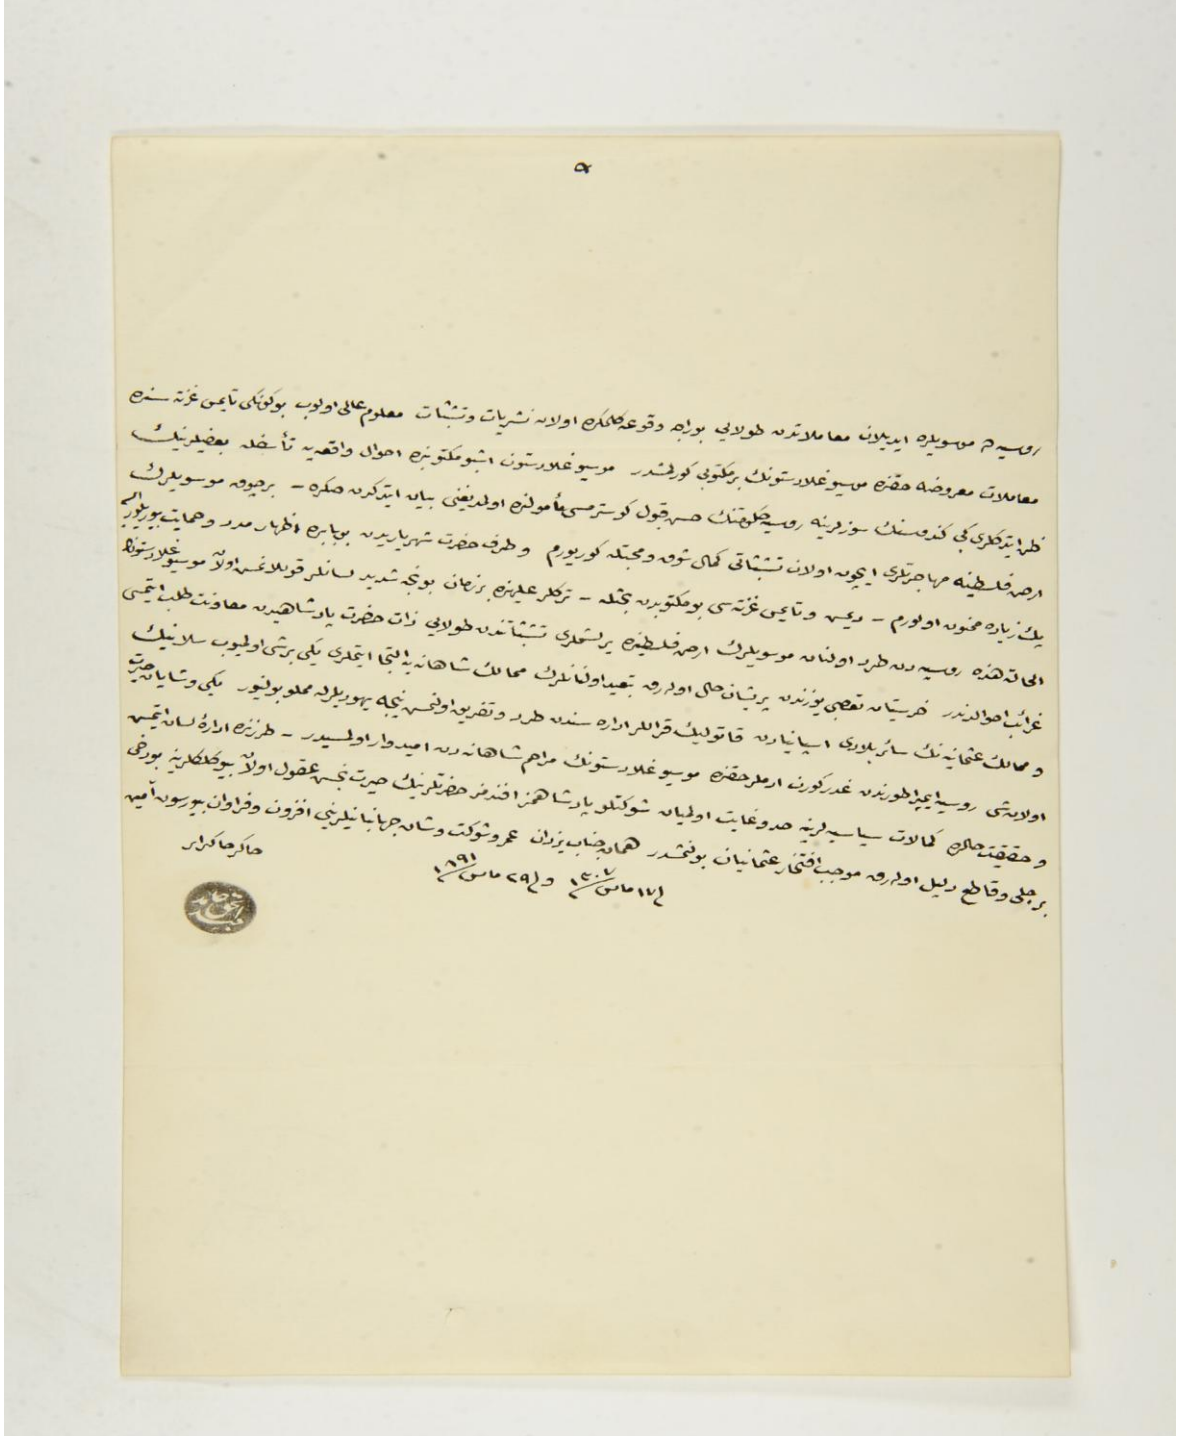 ه
روسیه ده موسویلره ایدیلان معاملاتدن طولایی بوراجه وقوعه كلمكده اولان نشریات و تشبثات معلوم عالی اولوب بوكونكی تایمس غزته سنده
معاملات معروضه حقنده موسیو غلادستونك بر مكتوبی كورلمشدر موسیو غلادستون اشبو مكتوبنده احوال واقعه یه تأسفله بعضیلرینك
ظن ایتدكلری كبی كندوسنك سوزلرینه روسیه حكومتنك حسن قبول كوسترمسی مأمولنده اولمدیغنی بیان ایتدكدن صكره - برچوق موسویلرك
ارض فلسطینه مهاجرتلری ایچون اولان تشبثاتی كمال شوق و محبتله كوریورم و طرف حضرت شهریاریدن بوبابده اظهار مدد و حمایت بیوریلور ایسه
پك زیاده ممنون اولورم - دیمس و تایمس غزته سی بو مكتوبدن بحثله - تركلر علیهنده بر زمان بونجه شدید لسانلر قوللانمش اولان موسیو غلادستونك
الحالة هذه روسیه دن طرد اولنان موسویلرك ارض فلسطینده یرلشملری تشبثاتندن طولایی ذات حضرت پادشاهیدن معاونت طلب ایتمسی
غرائب احوالدندر خرستیان تعصبی یوزندن پریشان حال اوله رق تبعید اولنانلرك ممالك شاهانه یه التجا ایتملری یكی برشی اولمیوب سلانیك
و ممالك عثمانیه نك سائر بلادی اسپانیادن قاتولیك قراللر اداره سندن طرد و تفریق اولنمس نیجه یهودیلرله مملو بولنیور یكی و شایان حیرت
اولان شی روسیه ایمپراطورندن غدر كورن ارملر حقنده موسیو غلادستونك مراحم شاهانه دن امیدوار اولمسیدر - طرزنده ادارهٔ لسان ایتمس
و حقیقت حالده كمالات سیاسیه لرینه حد و غایت اولمیان شوكتلو پادشاهمز افندمز حضرتلرینك حیرت بخش عقول اولان بیوكلكلرینه بو دخی
بر جلی و قاطع دلیل اوله رق موجب افتخار عثمانیان بولنمشدر همان جناب یزدان عمر و شوكت و شان جهانبانیلرینی افزون و فراوان بیورسون آمین
فی ١٧ مارس ١٣٠٧ و فی ٢٩ مارس ١٨٩١
چاكر چاكرلری